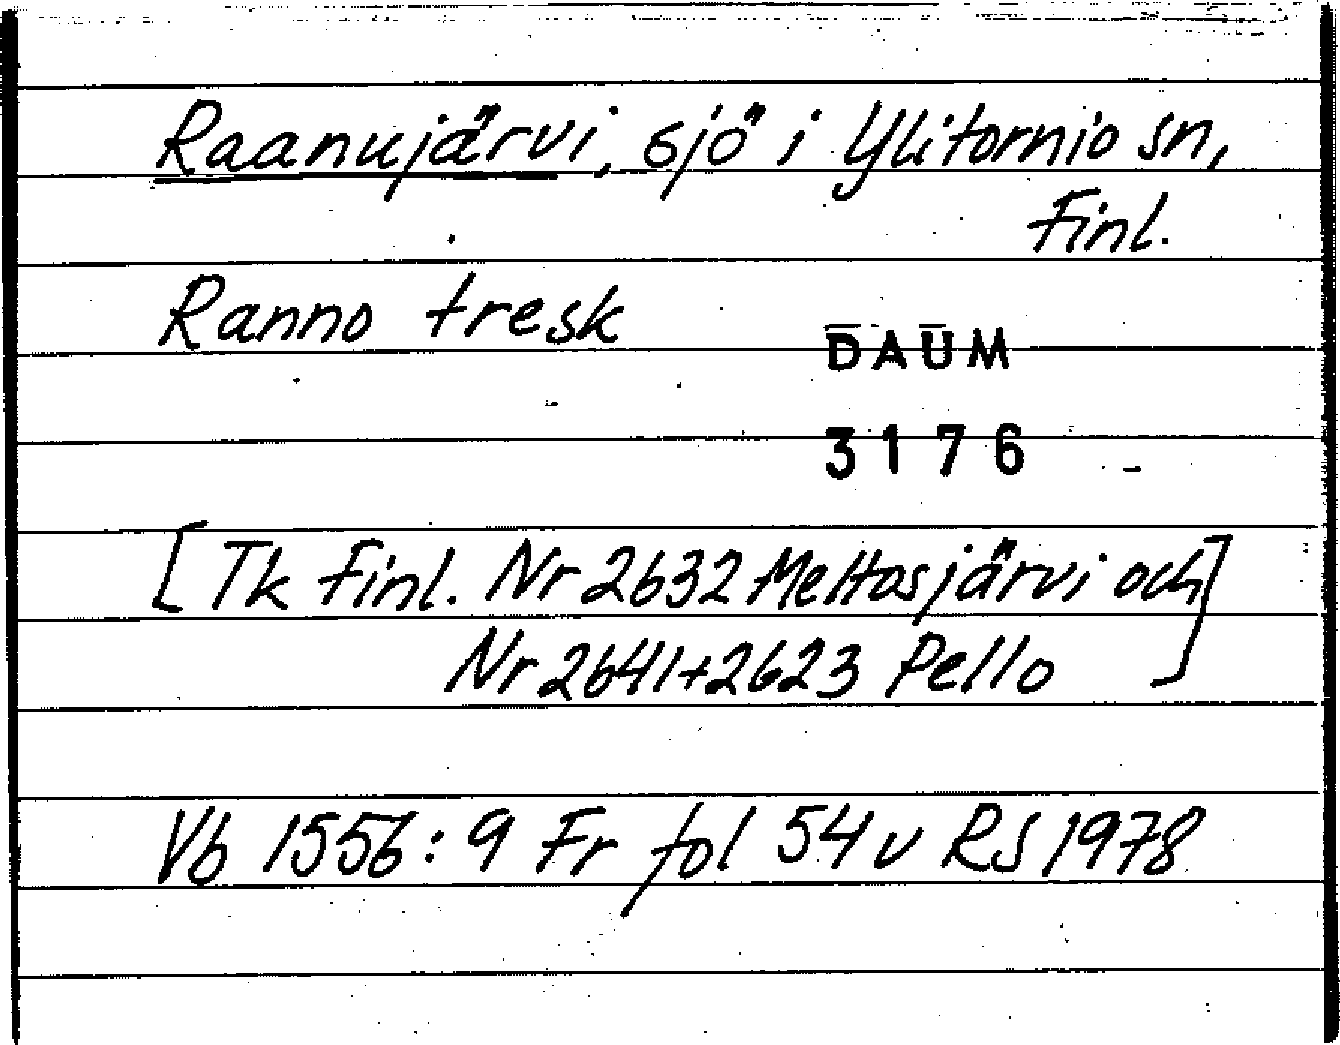 Raanujärvi, sjö i Ylitornio sn,
Finl.
Ranno tresk
DAUM
3176
[Tk Finl. Nr 2632 Meltosjärvi och
Nr 2641+2623 Pello]
Vb 1556:9 Fr fol 54 v RS 1978